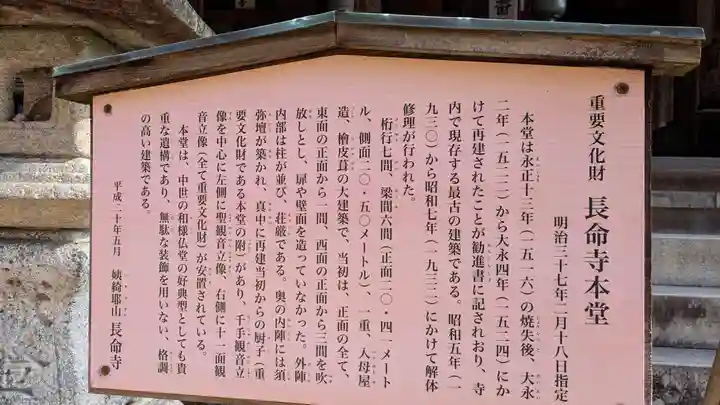 重要文化財 長命寺本堂
明治三十七年二月十八日指定
本堂は永正十三年（一五一六）の焼失後、大永
二年（一五二二）から大永四年（一五二四）にか
けて再建されたことが勧進書に記されおり、寺
内で現存する最古の建築である。昭和五年（一
九三〇）から昭和七年（一九三二）にかけて解体
修理が行われた。
桁行七間、梁間六間（正面二〇・四一メート
ル、側面一〇・五〇メートル）、一重、入母屋
造、檜皮葺の大建築で、当初は、正面の全て、
東面の正面から一間、西面の正面から三間を吹
放しとし、扉や壁面を造っていなかった。外陣
内部は柱が並び、荘厳である。奥の内陣には須
弥壇が築かれ、真中に再建当初からの厨子（重
要文化財である本堂の附）があり、千手観音立
像を中心に左側に聖観音立像、右側に十一面観
音立像（全て重要文化財）が安置されている。
本堂は、中世の和様仏堂の好典型としても貴
重な遺構であり、無駄な装飾を用いない、格調
の高い建築である。
平成二十年五月 姨綺耶山 長命寺